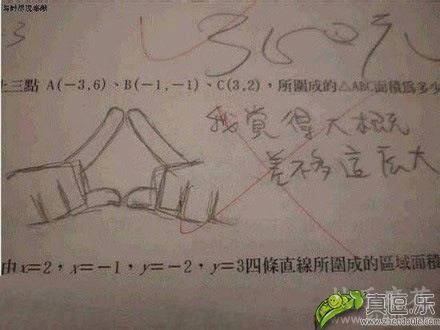 3
十三點 A(-3,6)、B(-1,-1)、C(3,2),所圍成的△ABC面積爲多少
我覺得大概
差不多這麼大
由x=2,x=-1,y=-2,y=3四條直線所圍成的區域面積
真逗乐
www.zhendoule.com